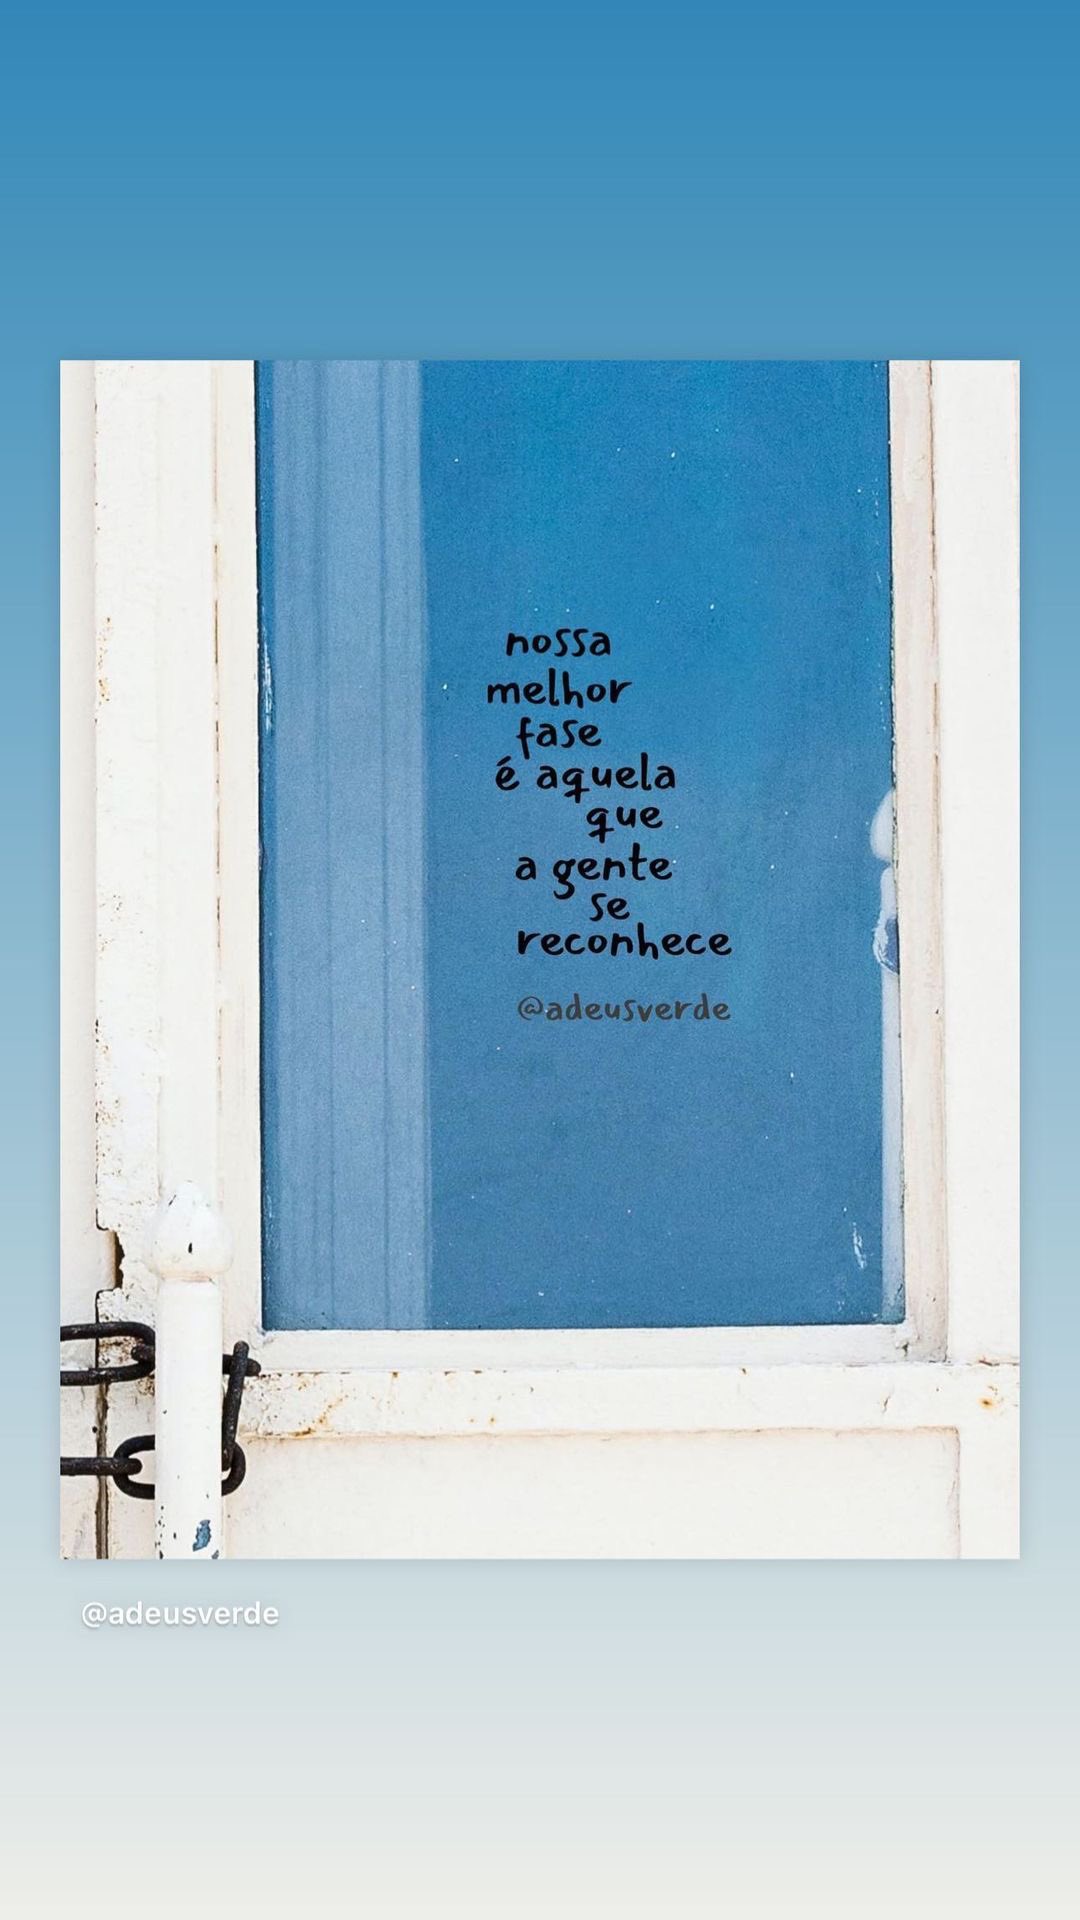 nossa
melhor
fase
é aquela
que
a gente
se
reconhece
@adeusverde
@adeusverde